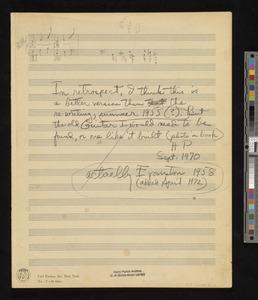 In retrospect, I think this is
a better version than the
rewriting, summer 1955 (?). But
the old Guitar I would need to be
found, or one like it built (photo in book)
H P
Sept. 1970
actually Evanston 1958
(about April
Carl Fischer, Inc. New York
Harry Partch Archive